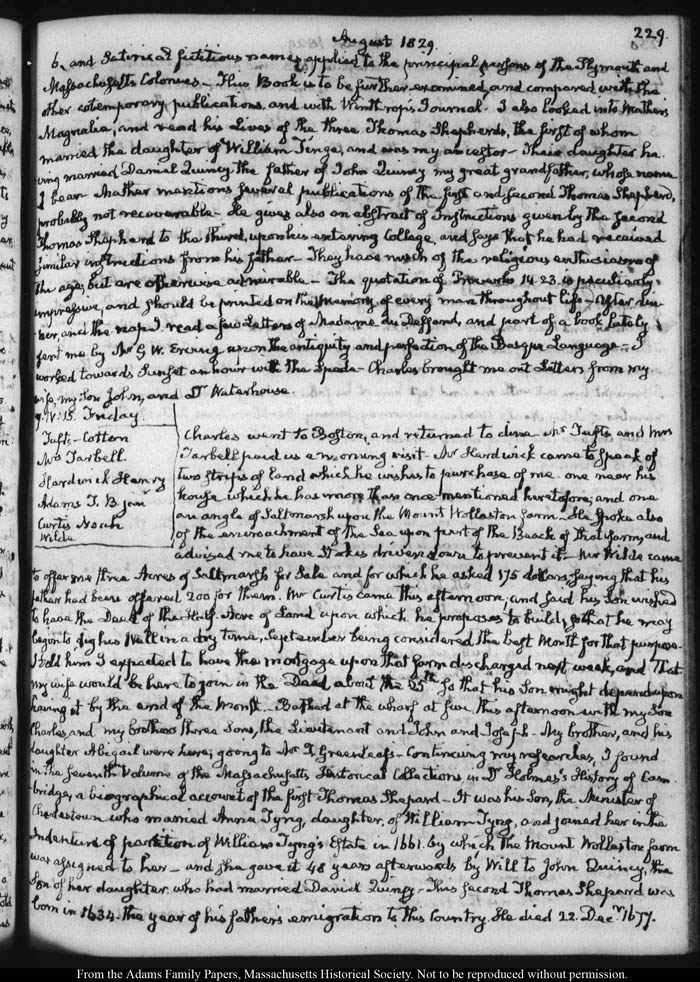 August 1829.
229.
b, and Satirical fictitious names applied to the principal persons of the Plymouth and
Massachusetts Colonies — This Book is to be further examined, and compared with the
other cotemporary publications, and with Winthrop's Journal. I also looked into Mather's
Magnalia, and read his Lives of the three Thomas Shepherds, the first of whom
married the daughter of William Tinge, and was my ancestor — Their daughter ha-
ving married Daniel Quincy, the father of John Quincy my great grandfather, whose name
I bear. Mather mentions several publications of the first and second Thomas Shepherd,
probably not recoverable — He gives also an abstract of Instructions given by the second
Thomas Shepherd to the third, upon his entering College, and says that he had received
similar instructions from his father — They have much of the religious enthusiasm of
the age, but are otherwise admirable — The quotation of Proverbs 14.23. is peculiarly
impressive, and should be printed on the Memory of every man throughout life — After din-
ner, and the nap I read a few Letters of Madame du Deffand, and part of a book lately
sent me by Mr G. W. Erving upon the antiquity and perfection of the Basque Language — I
worked towards Sunset an hour with the Spade — Charles brought me out Letters from my
wife, my Son John, and Dr Waterhouse.
IV: 15. Friday
Tufts — Cotton
Mrs Tarbell
Hardwick Henry
Adams T. B. junr
Curtis Noah
Wilde
Charles went to Boston, and returned to dine — Mr Tufts and Mrs
Tarbell paid us a morning visit — Mr Hardwick came to speak of
two strips of Land which he wishes to purchase of me. one near his
house which he has more than once mentioned heretofore, and one
an angle of Saltmarsh upon the Mount Wollaston farm — He spoke also
of the encroachment of the Sea upon part of the Beach of that farm, and
advised me to have Stakes driven down to prevent it — Mr Wilde came
to offer me three Acres of Saltmarsh for Sale and for which he asked 175 dollars, saying that his
father had been offered 200 for them. Mr Curtis came this afternoon, and said his Son wished
to have the Deed of the Half-Acre of Land upon which he proposes to build, so that he may
begin to dig his Well in a dry time, September being considered the best Month for that purpose.
I told him I expected to have the mortgage upon that farm discharged next week, and that
my wife would be here to join in the Deed, about the 25th so that his Son might depend upon
having it by the end of the Month. — Bathed at the wharf at five this afternoon with my Son
Charles, and my brothers three Sons, the Lieutenant and John and Joseph — My brother, and his
daughter Abigail were here; going to Mr D Greenleaf's — Continuing my researches, I found
in the seventh Volume of the Massachusetts Historical Collections in Dr Holmes's History of Cam-
bridge, a biographical account of the first Thomas Shepard — It was his Son, the Minister of
Charlestown who married Anna Tyng, daughter, of William Tyng, and joined her in the
Indenture of partition of William Tyng's Estate in 1661. by which the Mount Wollaston farm
was assigned to her — and she gave it 48 years afterwards by Will to John Quincy, the
Son of her daughter who had married Daniel Quincy — This second Thomas Shepard was
born in 1634. the year of his father's emigration to this Country. He died 22. Decr 1677.
From the Adams Family Papers, Massachusetts Historical Society. Not to be reproduced without permission.